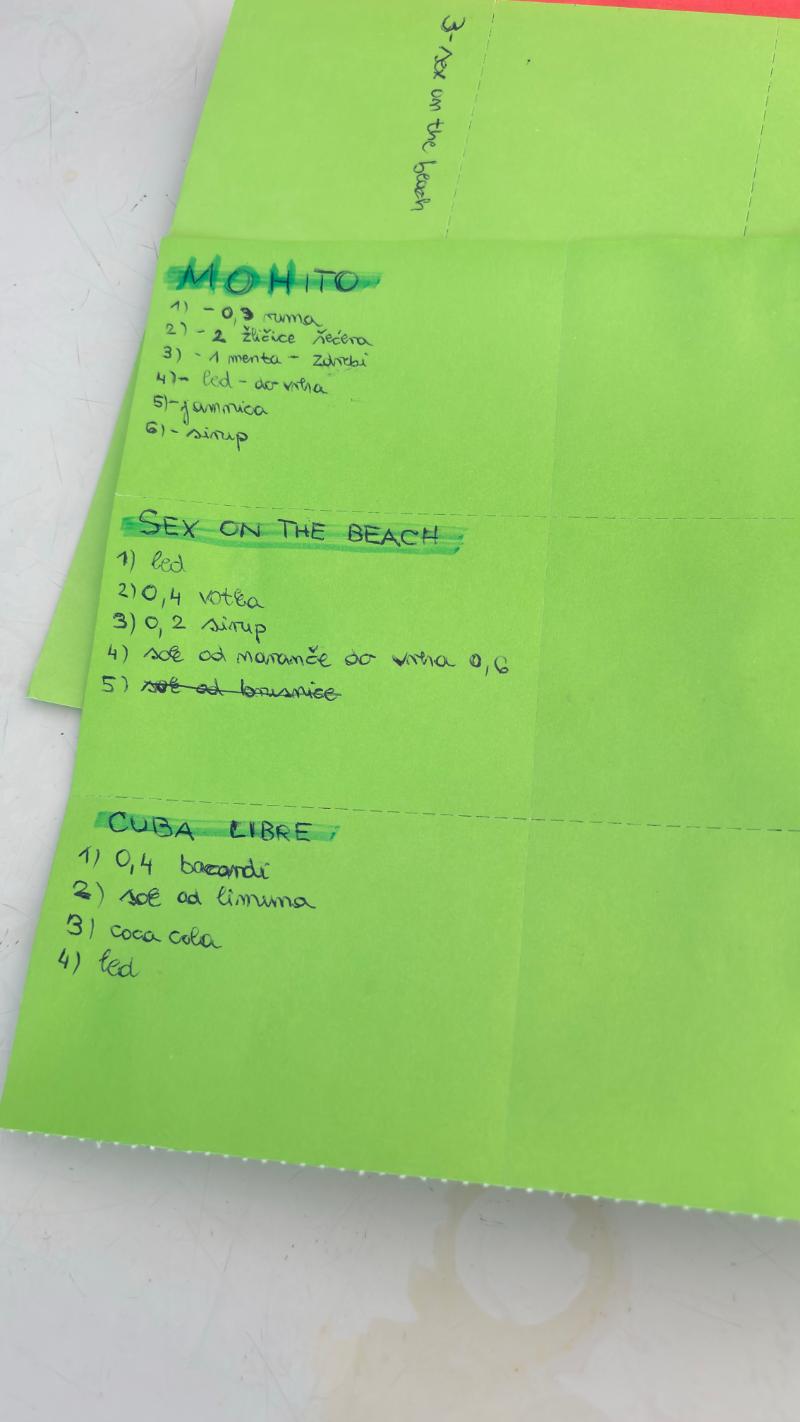 3- sex on the beach
MOHITO
1) - 0,3 ruma
2) - 2 žličice šećera
3) - 1 menta - zdrobi
4) - led - do vrha
5) - jamnica
6) - sirup
SEX ON THE BEACH
1) led
2) 0,4 votka
3) 0,2 sirup
4) sok od naranče do vrha 0,6
5) sok od brusnice
CUBA LIBRE
1) 0,4 bacardi
2) sok od limuna
3) coca cola
4) led